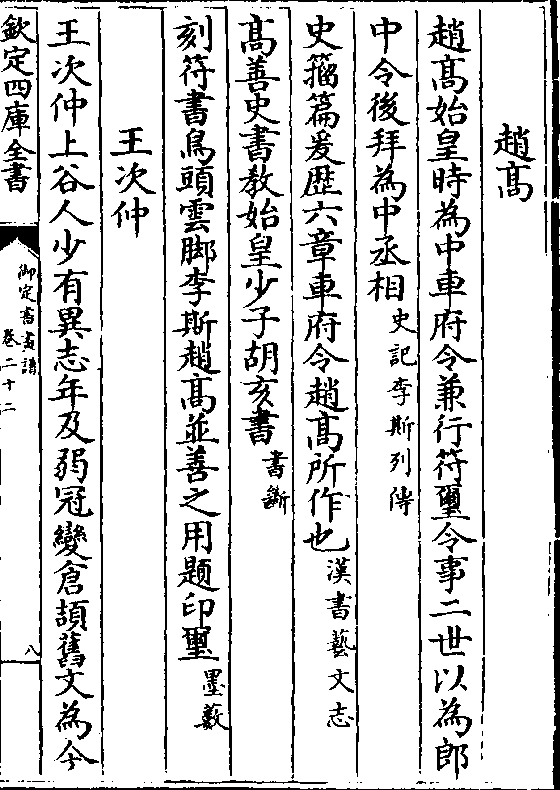 趙髙
趙髙始皇時為中車府令兼行符璽令事二世以為郎
中令後拜為中丞相史記李斯列傳
史籀篇爰歴六章車府令趙髙所作也漢書藝文志
髙善史書教始皇少子胡亥書書斷
刻符書鳥頭雲脚李斯趙髙並善之用題印璽墨藪
王次仲
王次仲上谷人少有異志年及弱冠變倉頡舊文為今
欽定四庫全書
御定書畫譜
卷二十二
八